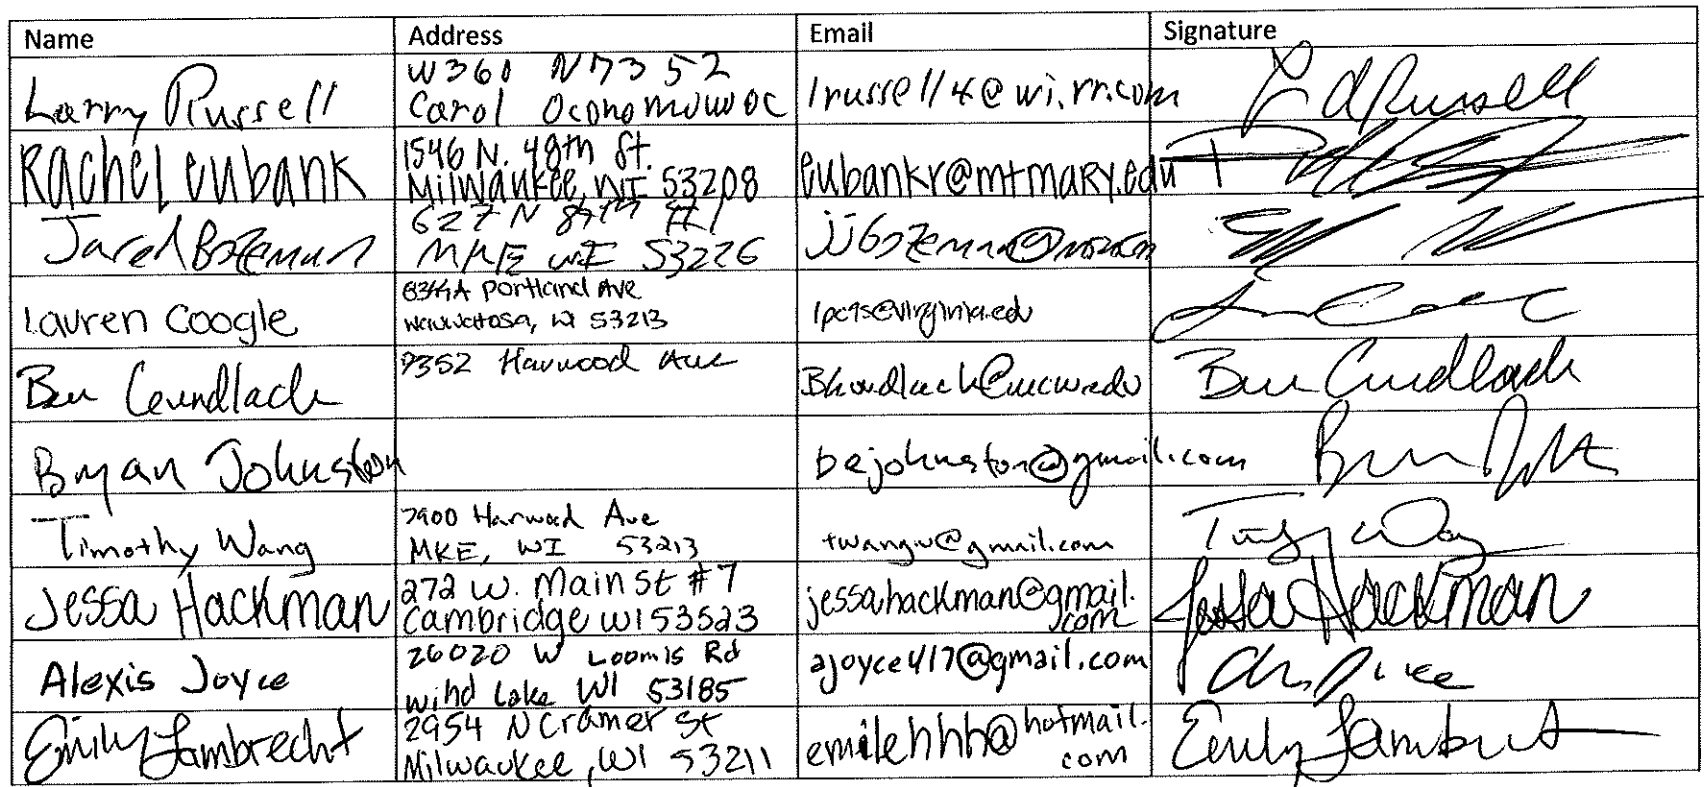 Name Address Email Signature
Larry Russell W360 N7352 Carol Oconomowoc lrussell4@wi.rr.com L d Russell
Rachel eubank 1546 N. 48th St. Milwaukee, WI 53208 eubankr@mtmary.edu
Jared Bozeman 627 N 8 #1 MKE WI 53226
Lauren Coogle Portland Ave Wauwatosa, WI 53213 lpc9s@virginia.edu
Ben Gundlach 7352 Harwood Ave Ben Gundlach
Bryan Johnston bejohnston@gmail.com
Timothy Wang 7900 Harwood Ave MKE, WI 53213 twangw@gmail.com
Jessa Hackman 272 W. Main St #7 Cambridge WI 53523 jessahackman@gmail.com Jessa Hackman
Alexis Joyce 26020 W Loomis Rd Wind Lake WI 53185 ajoyce417@gmail.com
Emily Lambrecht 2954 N Cramer St Milwaukee, WI 53211 emilehhh@hotmail.com Emily Lambrecht